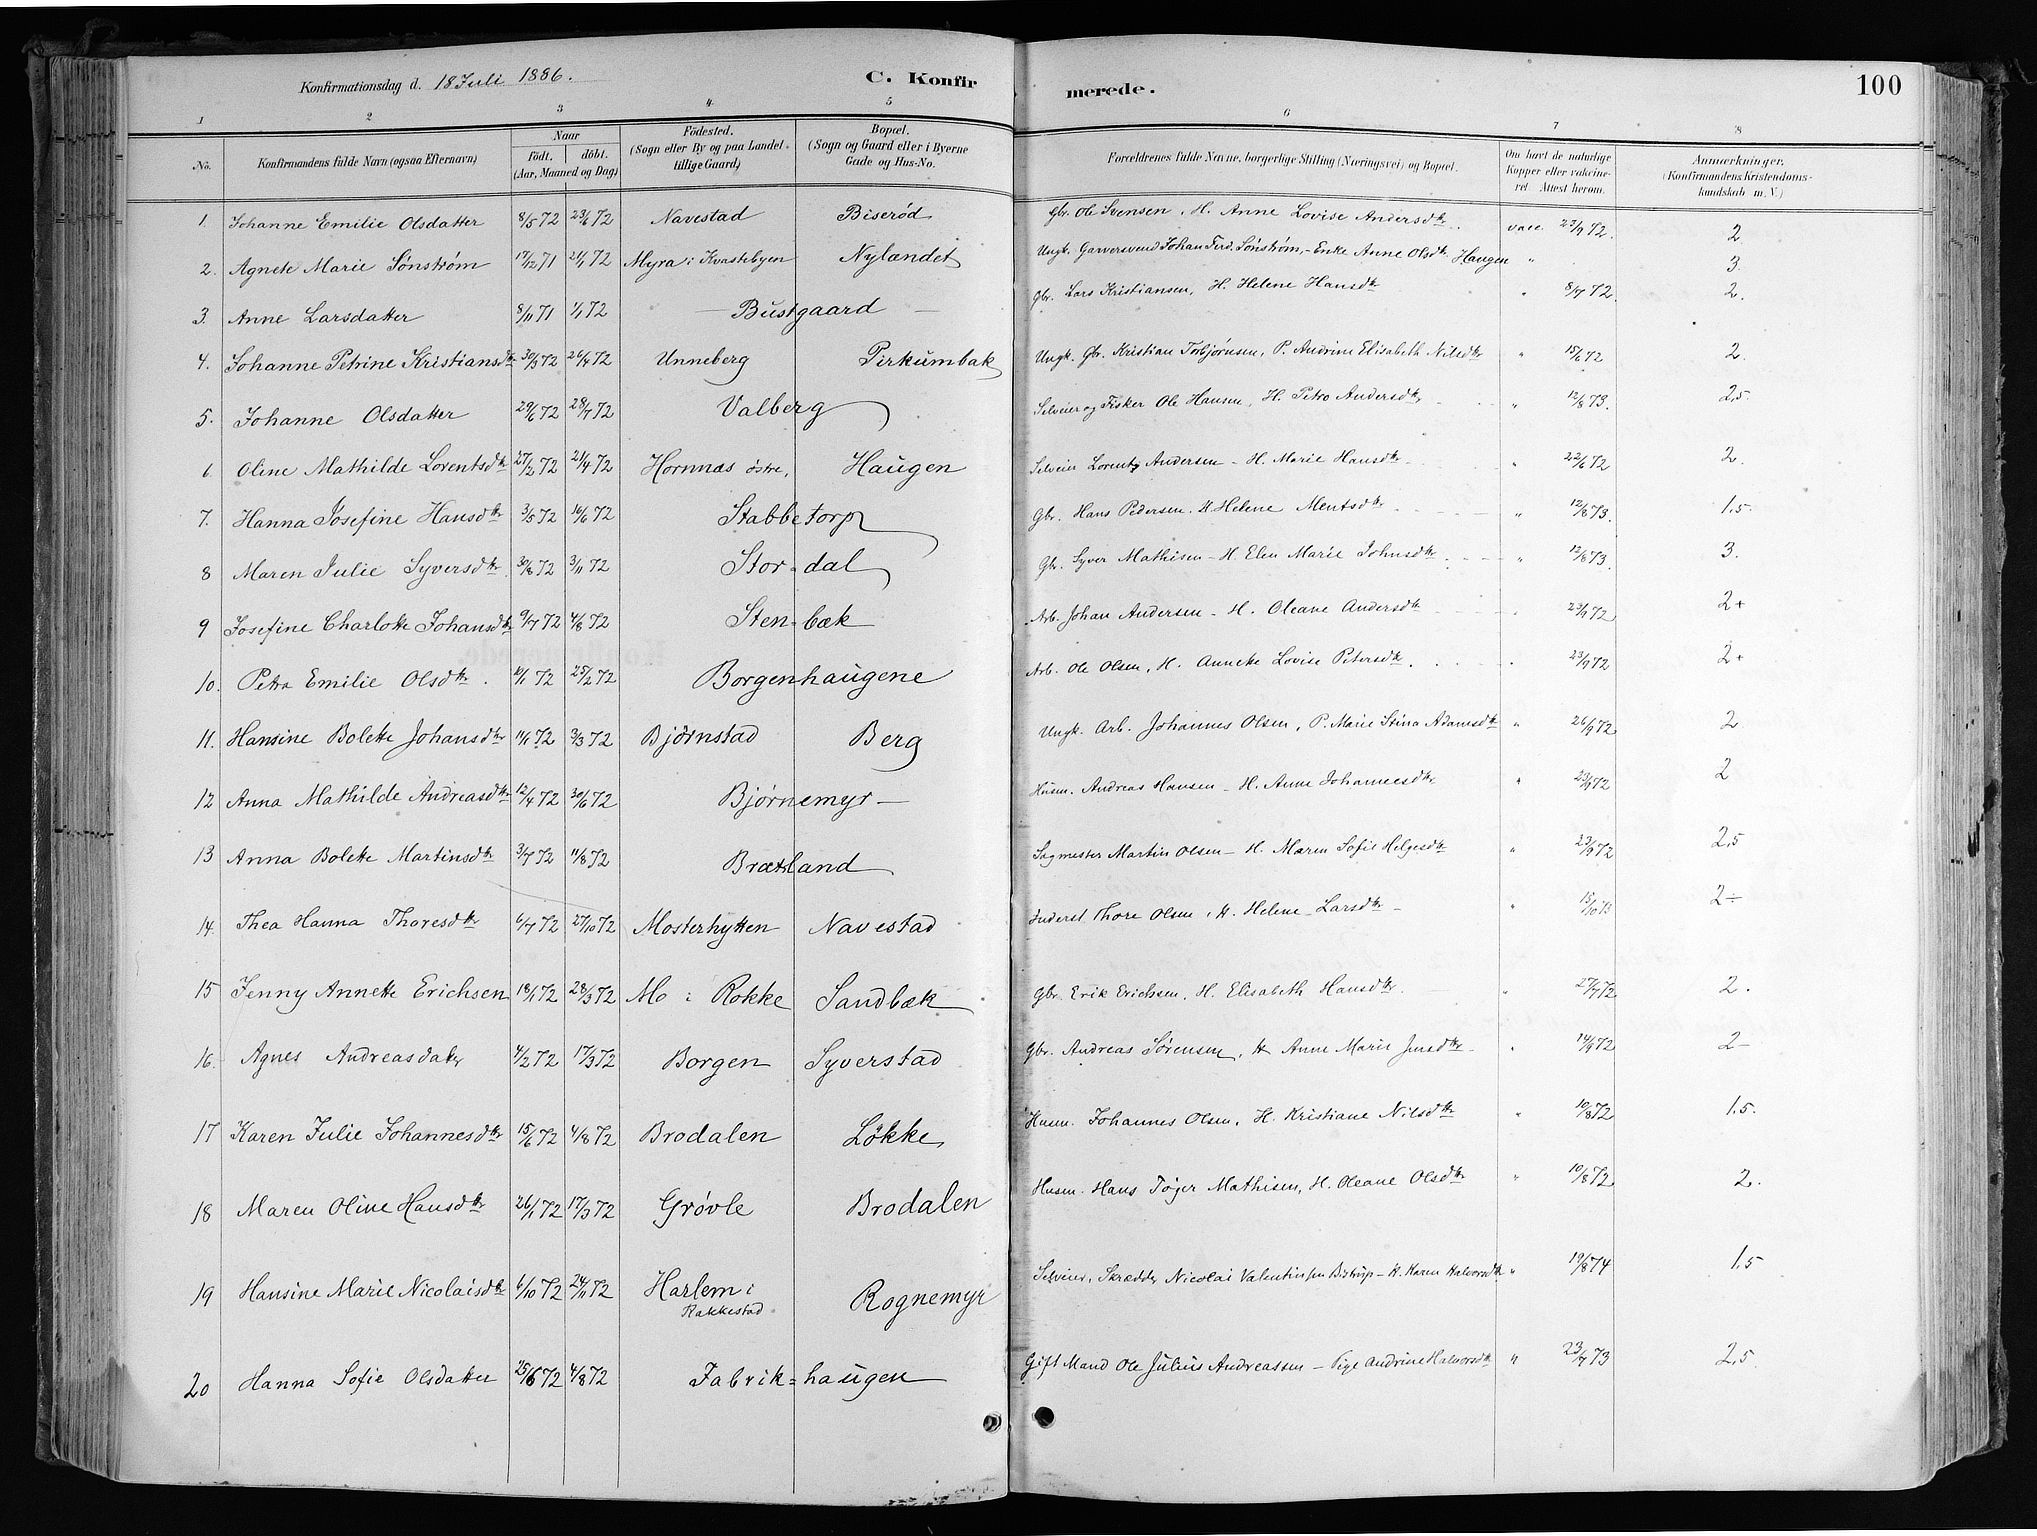 Konfirmationsdag d. 18 Juli 1886. C. Konfirmerede. 100
1 2 3 4 5 6 7 8
No. Konfirmandens fulde Navn (ogsaa Efternavn) Naar födt. döbt. (Aar, Maaned og Dag) Födested. (Sogn eller By og paa Landet tillige Gaard) Bopæl. (Sogn og Gaard eller i Byerne Gade og Hus-No. Forældrenes fulde Navne, borgerlige Stilling (Næringsvei) og Bopæl. Om havt de naturlige Kopper eller vakcineret. Attest herom. Anmærkninger. (Konfirmandens Kristendomskundskab m. V.)
1. Johanne Emilie Olsdatter 8/5 72 23/6 72 Navestad Biserød Gbr. Ole Svensen, H. Anne Lovise Andersdtr. vacc. 22/9 72. 2
2. Agnete Marie Sønstrøm 17/12 71 21/1 72 Myra i Kvastebyen Nylændet Ungk. Garversvend Johan Ferd. Sønstrøm, - Enke Anne Olsdtr. Haugen " 3.
3. Anne Larsdatter 8/11 71 1/1 72 Bustgaard Gbr. Lars Kristiansen, H. Helene Hansdtr " 8/7 72. 2.
4. Johanne Petrine Kristiansdtr 30/3 72 26/4 72 Unneberg Pirkumbak Ungk. Gbr. Kristian Torbjørnsen, P. Andrine Elisabeth Nilsdtr " 15/6 72 2.
5. Johanne Olsdatter 29/6 72 28/7 72 Valberg Selveier og Fisker Ole Hansen, H. Petro Andersdtr " 12/8 73. 2,5.
6. Oline Mathilde Lorentsdtr 27/2 72 21/4 72 Hornnæs østre, Haugen Selveier Lorentz Andersen - H. Marie Hansdtr " 22/6 72 2.
7. Hanna Josefine Hansdtr 3/5 72 16/6 72 Stabbetorp Gbr. Hans Pedersen. H. Helene Mentsdtr " 12/8 73. 1,5.
8 Maren Julie Syversdtr. 30/8 72 3/11 72 Stordal Gbr. Syver Mathisen - H. Elen Marie Johnsdtr " 12/8 73. 3.
9 Josefine Charlotte Johansdtr 9/7 72 4/8 72 Sten=bæk Arb. Johan Andersen - H. Oleane Andersdtr " 23/9 72 2+
10. Petra Emilie Olsdtr. 10/1 72 25/2 72 Borgenhaugene Arb. Ole Olsen, H. Anneke Lovise Petersdtr. " 23/9 72 2+
11. Hansine Bolette Johansdtr 11/1 72 3/3 72 Bjørnstad Berg Ungk. Arb. Johannes Olsen, P. Marie Stina Adamsdtr " 26/9 72 2
12 Anna Mathilde Andreasdtr 12/4 72 30/6 72 Bjørnemyr - Husm. Andreas Hansen - H. Anne Johannesdtr " 23/9 72 2
13 Anna Bolette Martinsdtr 3/7 72 11/8 72 Brætland Sagmester Martin Olsen - H. Maren Sofie Helgesdtr " 23/9 72 2,5
14. Thea Hanna Thoresdtr 6/7 72 27/10 72 Mosterhytten Navestad Inderst Thore Olsen, H. Helene Larsdtr - " 15/10 73 2÷
15 Jenny Annette Erichsen 18/1 72 28/3 72 Mo i Rokke Sandbæk Gbr. Erik Erichsen, H. Elisabeth Hansdtr. " 27/7 72 2.
16. Agnes Andreasdatter 4/2 72 17/3 72 Borgen Syverstad Gbr. Andreas Sørensen, H Anne Marie Jensdtr. " 14/9 72 2-
17 Karen Julie Johannesdtr 15/6 72 4/8 72 Brodalen Løkke, Husm. Johannes Olsen, H. Kristiane Nilsdtr " 10/8 72 1.5.
18 Maren Oline Hansdtr 26/1 72 17/3 72 Grøvle Brodalen Husm. Hans Tøger Mathisen, H. Oleane Olsdtr " 10/8 72 2.
19 Hansine Marie Nicolaisdtr 6/10 72 24/11 72 Harlem i Rakkestad Rognemyr Selveier, Skrædder Nicolai Valentinsen Bistrup - H. Karen Halvorsdtr " 19/8 74 1.5
20 Hanna Sofie Olsdatter 25/6 72 4/8 72 Fabrik=haugen Gift Mand Ole Julius Andreassen - Pige Andrine Halvorsdtr " 23/7 73 2,5.